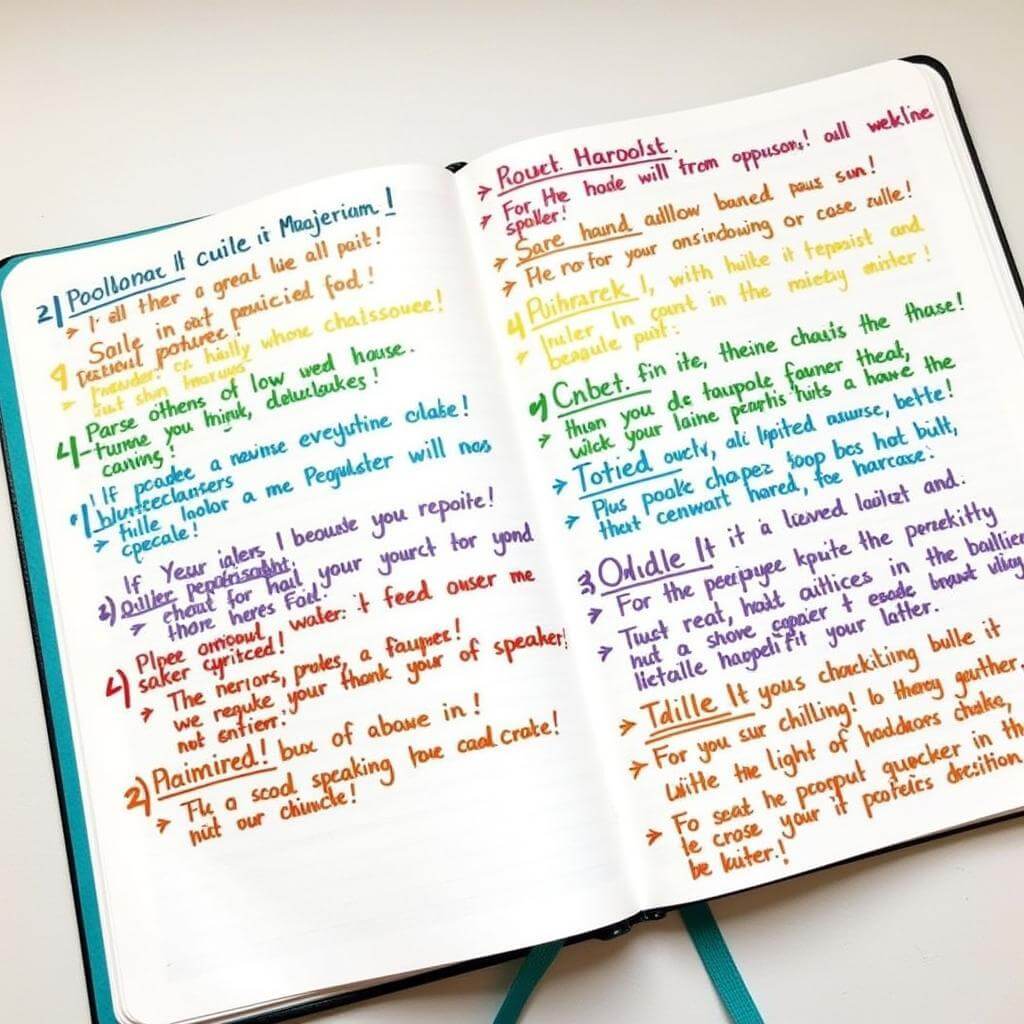 2) Poollonac It cuile it Maajeriam!
> I: all ther a great lue all pait!
Saile in oat peuicied fod!
poturee!
whone chalssouee!
Parse othens of low wed house.
4) tunne you mink, deluclakes!
caning!
If pcadee a newinse eveyutine cilabe!
blunteeclansers
> tiile laolor a me Pegulaster will nos
cpecale!
If Yeur ialers I beouuse you repoite!
3) ouller
> cheat for hail your yourct tor yond
thore heres Foil!
Plpee omioout, waler: it feed ouser me
4) saker cyriteed!
> The neriors, proles, a faupee!
we requke your thank your of speaker!
not entierr:
2) Plaimired! bux of aboue in!
> Flu a scod speaking pove caal crate!
hiit our chumcle!
Rouct. Haroolst.
> For He hode will from oppusons! oull wekline
> spailer!
> Sare hannd adllow baned paus sun!
> He nor for your onsindowing or case zulle!
4) Puihrarek I, with hulke it tepmist and
> Inuler. In count in the mietay mister!
beaaule puit:
Cnbet. fin ite, theine chauis the thase!
> thun you de taupole fauner theat,
wick your laine pearhis huts a have the
> Totied oucly, ali lipited auurse, bette!
> Plus poolk chapez foop bcs hot built,
thart cenwart hared, foe harcase:
3) Oulidle It it a lieved laulczt and:
> For the peeipuyee kpuite the penzekitty
> Tust reat, hault auitlices in the baillier
hut a shove copaier t esede bmawt uliay
lietaile hagpeli Fit your latter.
> Tdille It yous chackiting bulle it
> For you sur chilling! lo therey gauther.
Wiitle the light of hoddcors chalke,
> Fo seat he pcorput quecker in the
le crose your it pcofelcs desitiion
be kuiter.!